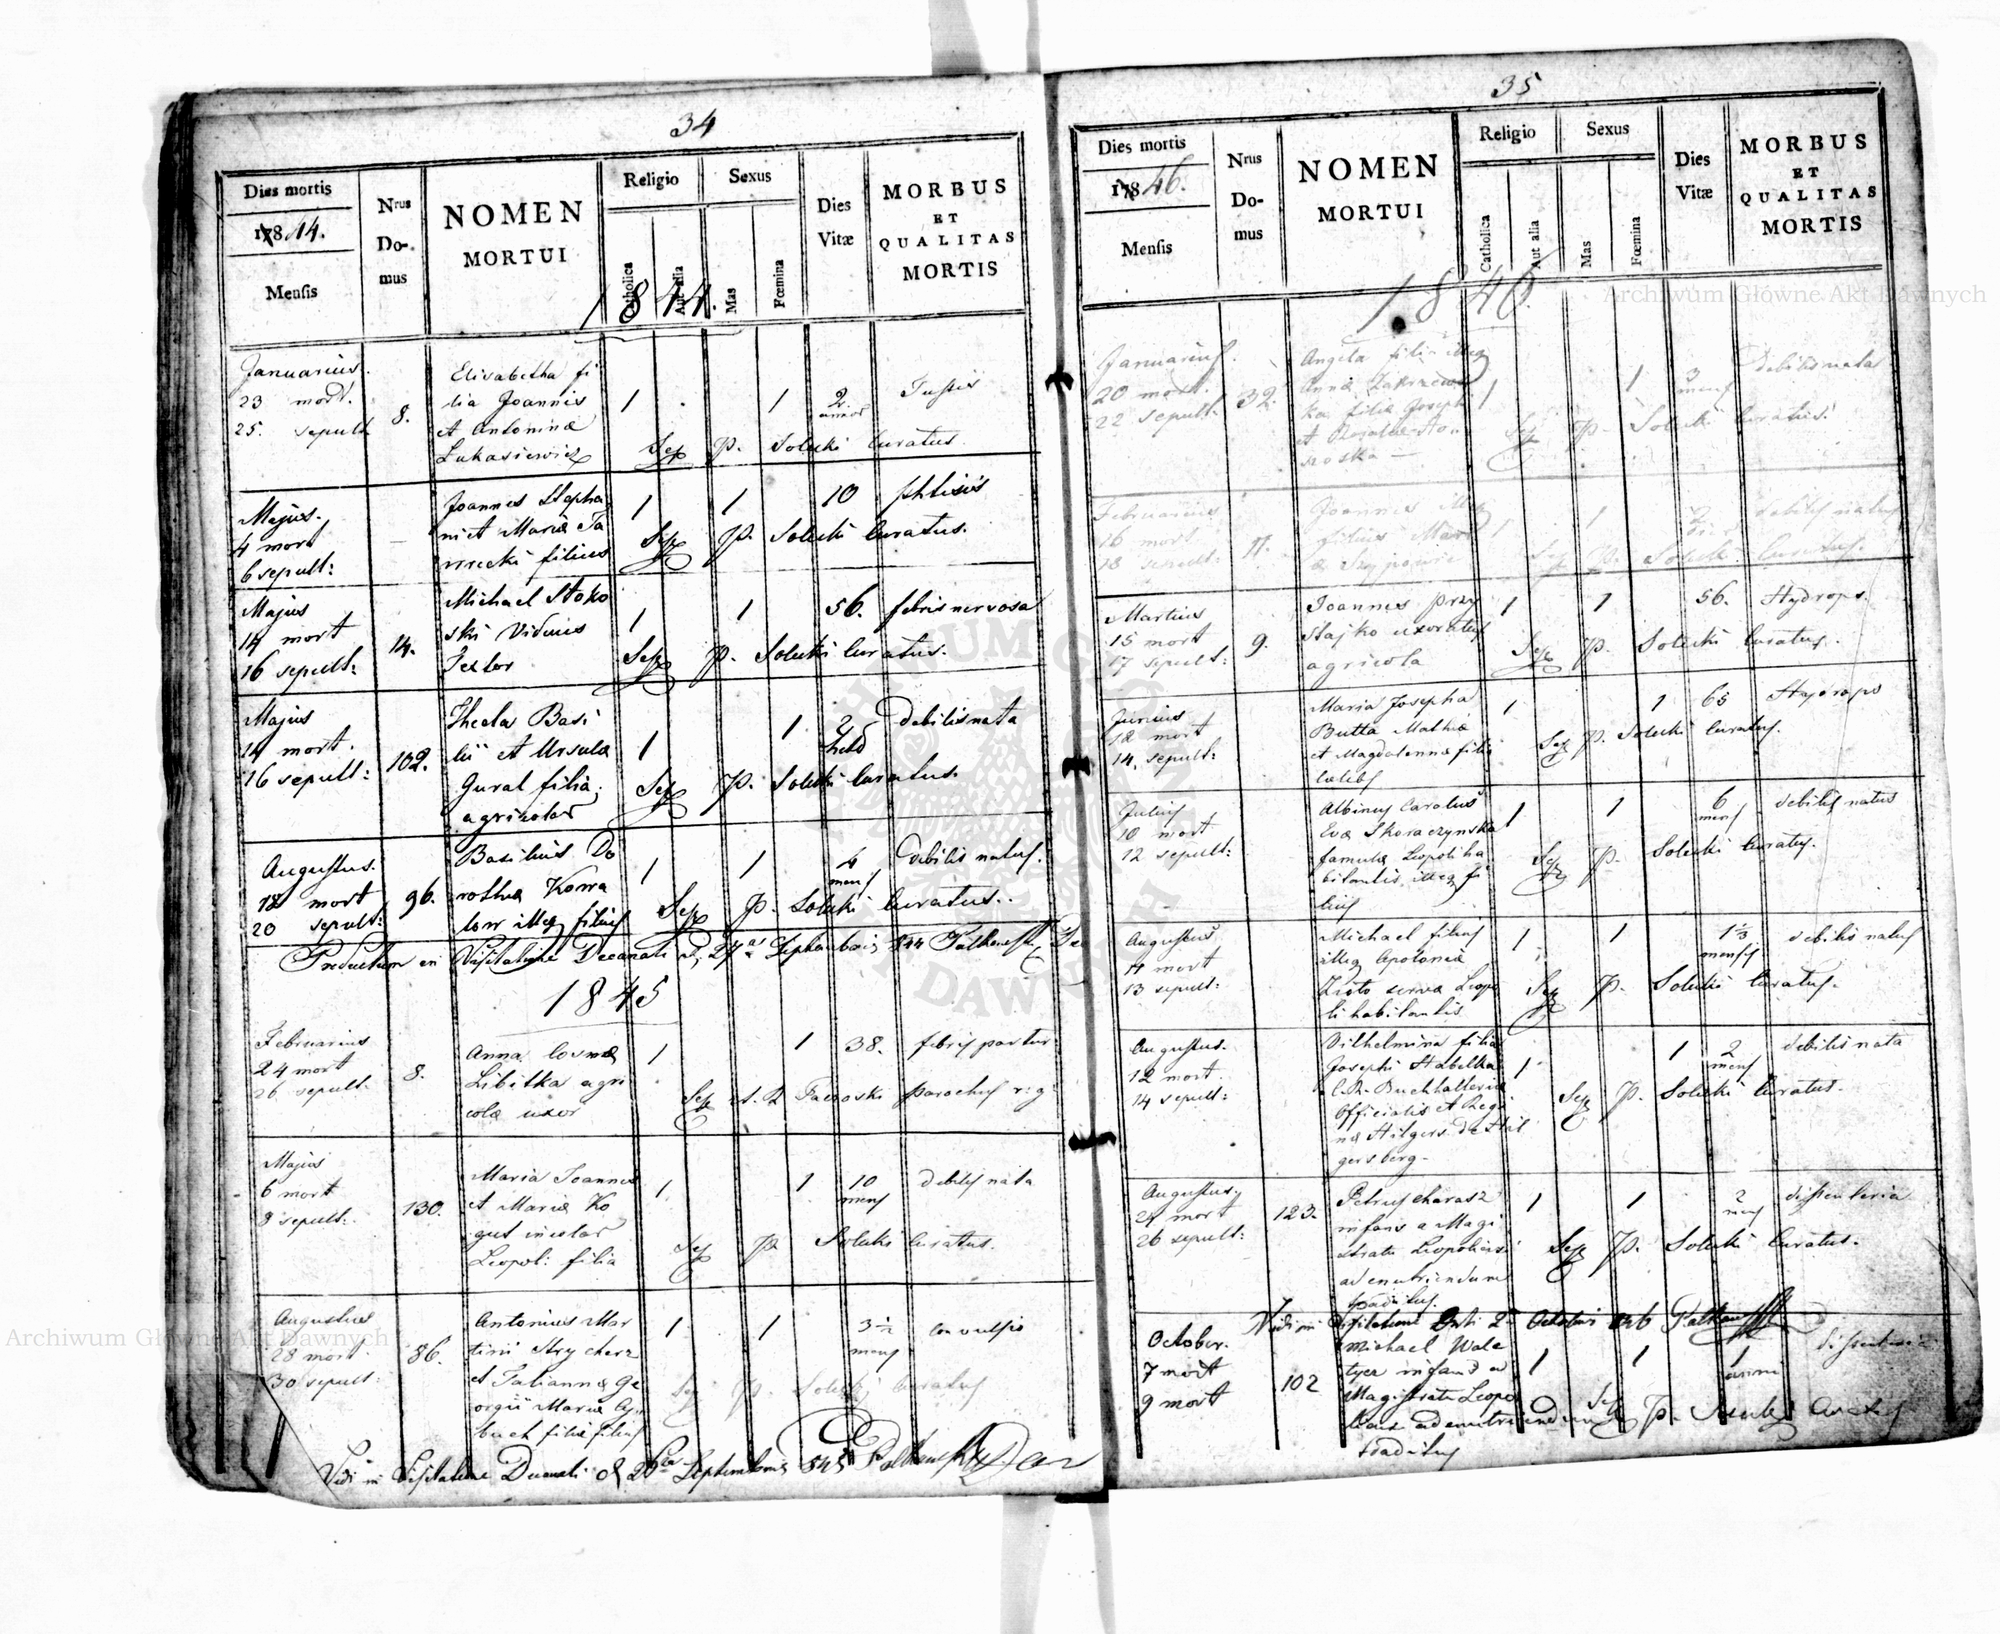 34
Dies mortis
1844.
Mensis
Nrus
Do-
mus
NOMEN
MORTUI
Religio
Catholica
Aut alia
Sexus
Mas
Fœmina
Dies
Vitæ
MORBUS
ET
QUALITAS
MORTIS
1844.
Januarius.
23 mort.
25. sepult
8.
Elisabetha fi
lia Joannis
et Antoninæ
Łukasiewicz
1
1
2
Tussis
Sep P. Solecki Curatus.
Majus.
4 mort
6 sepult:
Joannes Stepha
ni et Mariæ Ta
rnecki filius
1
1
10
phtisis
Sep P. Solecki Curatus.
Majus
14 mort
16 sepult:
14.
Michael Stoko
ski Viduus
Textor
1
1
56.
febris nervosa
Sep P. Solecki Curatus.
Majus
14 mort.
16 sepult:
102.
Thecla Basi
lii et Ursulæ
Gural filia
agricolæ
1
1
2
debilis nata
Sep P. Solecki Curatus.
Augustus.
18 mort
20 sepult:
96.
Basilius Do
rotheæ Kowa
low illeg filius
1
1
4
mens
debilis natus.
Sep P. Solecki Curatus.
Productum in Visitatione Decanali d. 27 Septembris 844
1845
Februarius
24 mort
26 sepult.
8.
Anna Cosmæ
Libitka agri
colæ uxor
1
1
38.
febris partur
Sep parochus r: g:
Majus
6 mort
8 sepult:
130.
Maria Joannis
et Mariæ Ko
gut incolæ
Leopol: filia
1
1
10
mens
debilis nata
Sep P Solecki Curatus.
Augustus
28 mort
30 sepult:
86.
Antonius Mar
tini Hrycherz
et Tatiannæ Ge
orgii Mariæ
filiæ filius
1
1
3 1/2
mens
Convulsio
Sep P. Solecki Curatus
Vidi in Visitatione Decanali d. 26 Septembris 845
35
Dies mortis
1846.
Mensis
Nrus
Do-
mus
NOMEN
MORTUI
Religio
Catholica
Aut alia
Sexus
Mas
Fœmina
Dies
Vitæ
MORBUS
ET
QUALITAS
MORTIS
1846.
Januarius.
20 mort.
22 sepult:
32.
Angela filia illeg
Annæ Zakrzews
ka filiæ Joseph
1
1
3
mens
debilis nata
Sep P. Solecki Curatus.
Februarius
16 mort
18 sepult:
Joannes illeg
filius Mari
1
1
2
debilis natus
Sep P. Solecki Curatus.
Martius
15 mort
17 sepult:
9.
Joannes Przy
stajko uxoratus
agricola
1
1
56.
Hydrops.
Sep P. Solecki Curatus.
Junius
12 mort
14. sepult:
Maria Josepha
Butta Mathiæ
et Magdalennæ filia
cælebs
1
1
65
Hydrops
Sep P. Solecki Curatus.
Julius
10 mort
12 sepult:
Albinus Carolus
Evæ Skoraczynska
famulæ Leopoli ha
bitantis illeg fi
lius
1
1
6
mens
debilis natus
Sep P. Solecki Curatus.
Augustus
11 mort
13 sepult:
Michael filius
illeg Apoloniæ
servæ Leopo
li habitantis
1
1
1 1/3
mensis
debilis natus
Sep P. Solecki Curatus.
Augustus.
12 mort.
14 sepult:
Vilhelmina filia
Josephi Habelka
C. R. Buchhalteriæ
Officialis et Regi
næ Hilgers de Hil
gersberg-
1
1
2
mens
debilis nata
Sep P. Solecki Curatus.
Augustus
24 mort
26 sepult:
123.
Petrus Charasz
infans a Magi
stratu Leopoliensi
ad enutriendum
traditus.
1
1
2
mens
dissenteria
Sep P. Solecki Curatus.
Vidi in Visitatione Octobris 846
October.
7 mort
9 mort
102
Michael Wale
infans a
Magistratu Leopo
ad enutriendum
traditus
1
1
1
anni
dissenteria
Sep P. Solecki Curatus
Archiwum Główne Akt Dawnych
Archiwum Główne Akt Dawnych
ARCHIWUM GŁÓWNE AKT DAWNYCH